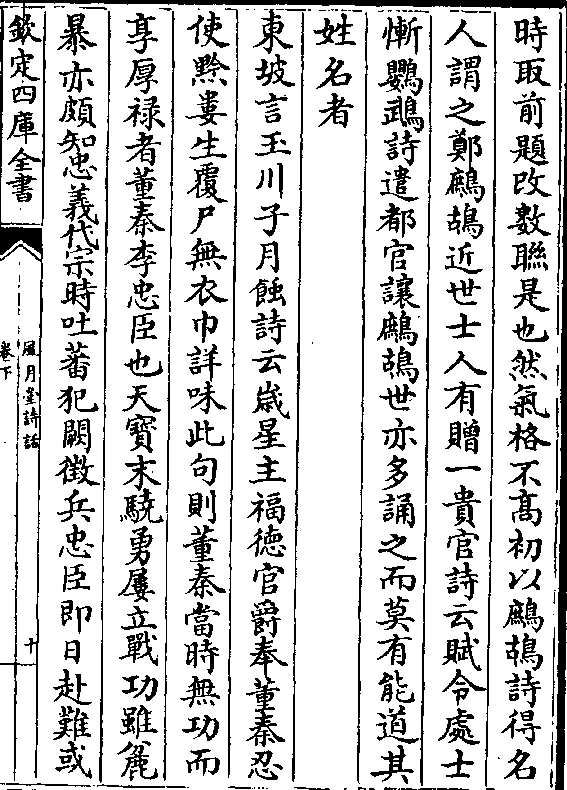 時取前題改數聯是也然氣格不髙初以鷓鴣詩得名
人謂之鄭鷓鴣近世士人有贈一貴官詩云賦令處士
慚鸚鵡詩遣都官讓鷓鴣世亦多誦之而莫有能道其
姓名者
東坡言玉川子月蝕詩云嵗星主福德官爵奉董秦忍
使黔婁生覆尸無衣巾詳味此句則董秦當時無功而
享厚禄者董秦李忠臣也天寳末驍勇屢立戰功雖麄
暴亦頗知忠義代宗時吐蕃犯闕徴兵忠臣即日赴難或
欽定四庫全書
風月堂詩話
卷下
十